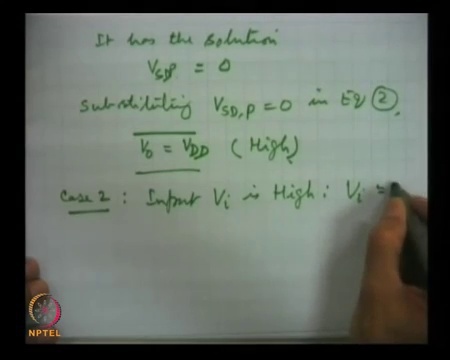 It has the solution
V_SDP = 0
Substituting V_SD,P = 0 in Eq (2),
V_0 = V_DD (High)
Case 2 : Input V_i is High : V_i =
NPTEL